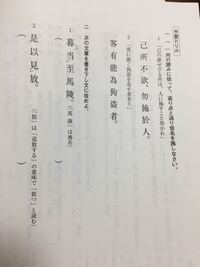 予習ドリル
一 「 」内の読み方に従って、返り点と送り仮名を施しなさい。
1 「己の欲せざる所は、人に施すこと勿かれ」
己所不欲、勿施於人。
2 「客に能く狗盗を為す者有り」
客有能為狗盗者。
二 次の文章を書き下し文に改めよ。
1 暮当至馬陵。(「馬陵」は地名)
( )
2 是以見放。(「放」は「追放する」の意味で「放つ」と読む)
( )